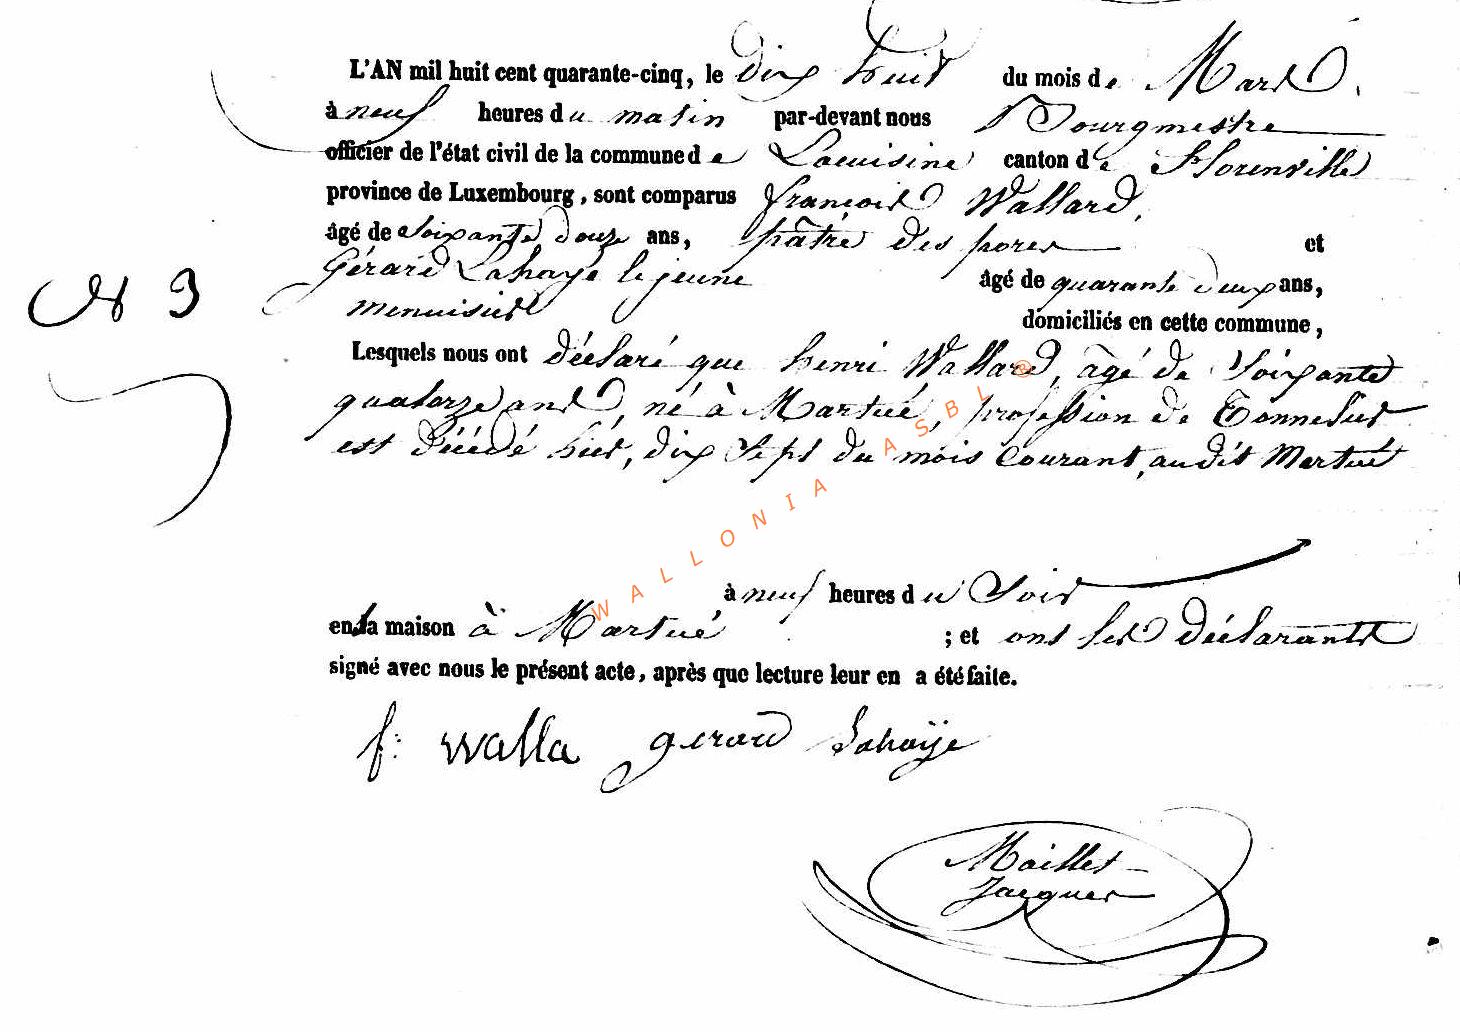 L'AN mil huit cent quarante-cinq, le dix huit du mois de Mars.
à neuf heures du matin par-devant nous Bourgmestre
officier de l'état civil de la commune de Lacuisine canton de Florenville
province de Luxembourg, sont comparus françois Wallard,
âgé de Soixante douze ans, pâtre des porcs et
Gérard Lahaye le jeune âgé de quarante deux ans,
menuisier domiciliés en cette commune,
N 3
Lesquels nous ont déclaré que henri Wallard, âgé de Soixante
quatorze ans, né à Martué, profession de Tonnelier
est décédé hier, dix Sept du mois Courant, audit Martué
à neuf heures du Soir
en la maison à Martué ; et ont les déclarants
signé avec nous le présent acte, après que lecture leur en a été faite.
f: walla gerard Lahaÿe
Maillet
Jacques
WALLONIA ASBL ®